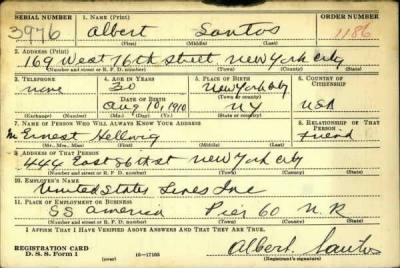 SERIAL NUMBER 1. NAME (Print) ORDER NUMBER
3976 Albert Santos 1186
(First) (Middle) (Last)
2. ADDRESS (Print)
169 West 76th Street New York City
(Number and street or R. F. D. number) (Town) (County) (State)
3. TELEPHONE 4. AGE IN YEARS 5. PLACE OF BIRTH 6. COUNTRY OF CITIZENSHIP
none 30 New York City
DATE OF BIRTH (Town or county)
Aug 10, 1910 NY USA
(Exchange) (Number) (Mo.) (Day) (Yr.) (State or country)
7. NAME OF PERSON WHO WILL ALWAYS KNOW YOUR ADDRESS 8. RELATIONSHIP OF THAT PERSON
M Ernest Hellwig Friend
(Mr., Mrs., Miss) (First) (Middle) (Last)
9. ADDRESS OF THAT PERSON
444 East 86th St New York City
(Number and street or R. F. D. number) (Town) (County) (State)
10. EMPLOYER'S NAME
United States Lines Inc
11. PLACE OF EMPLOYMENT OR BUSINESS
SS America Pier 60 N.R
(Number and street or R. F. D. number) (Town) (County) (State)
I AFFIRM THAT I HAVE VERIFIED ABOVE ANSWERS AND THAT THEY ARE TRUE.
REGISTRATION CARD
D. S. S. Form 1 (over) 16—17105 Albert Santos
(Registrant's signature)